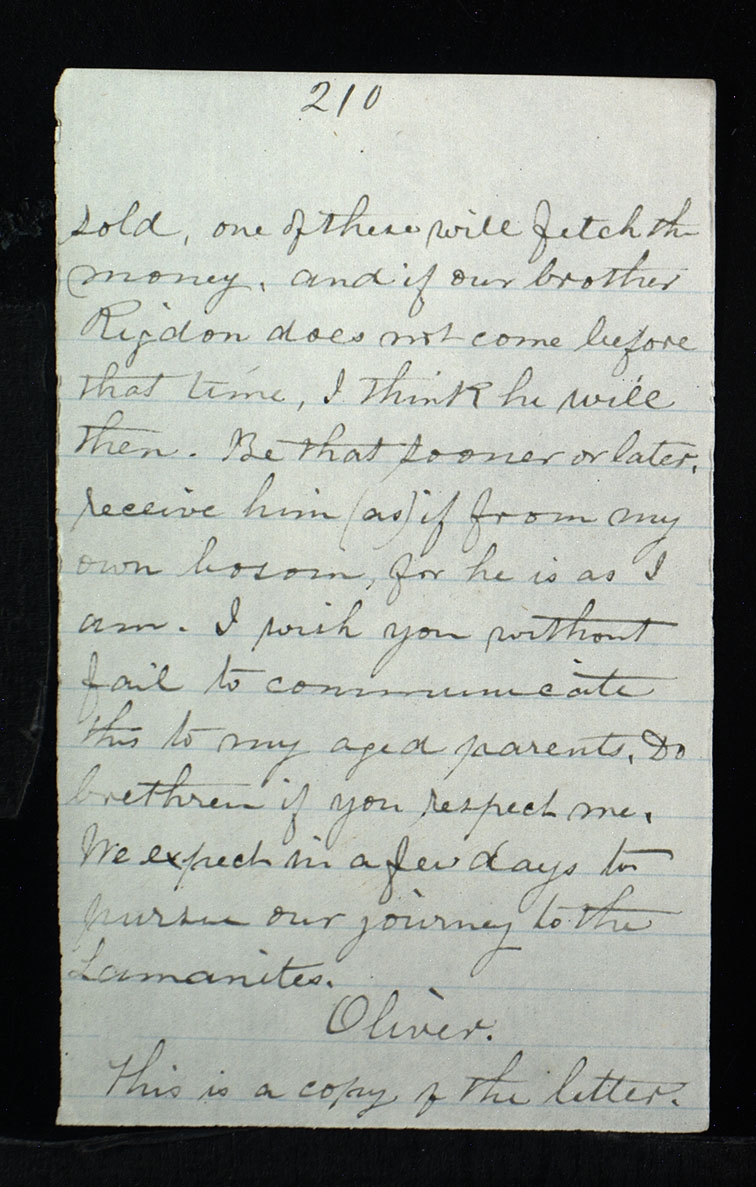 210
sold, one of these will fetch th
money, and if our brother
Rigdon does not come before
that time, I think he will
then. Be that sooner or later,
receive him (as) if from my
own bosom, for he is as I
am. I wish you without
fail to communicate
this to my aged parents. Do
brethren if you respect me.
We expect in a few days to
pursue our journey to the
Lamanites.
Oliver.
This is a copy of the letter.